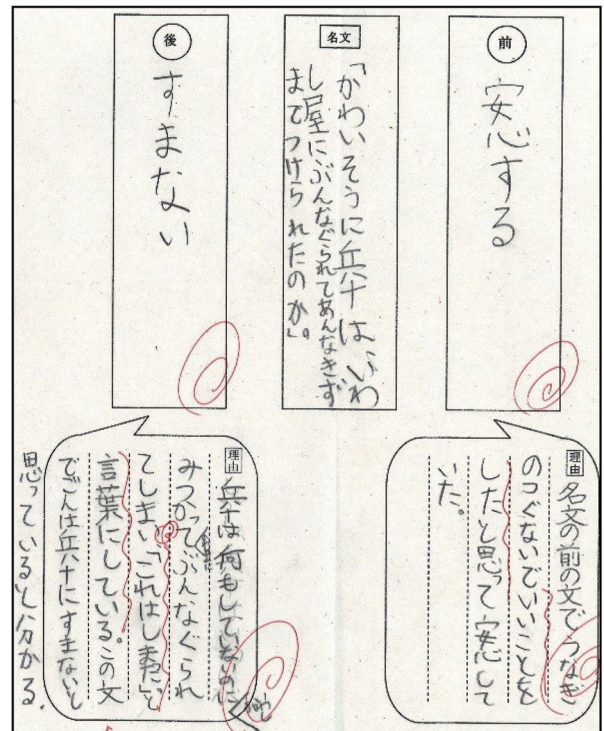 前
安心する
名文
「かわいそうに兵十は、いわ
し屋にぶんなぐられてあんなきず
までつけられたのか」。
後
すまない
理由
名文の前の文でうなぎ
のつぐないでいいことを
したと思って安心して
いた。
理由
兵十は何もしていないのに
みつかってぶんなぐられ
てしまい「これはしまった」と
言葉にしている。この文
でごんは兵十にすまないと
思っていると分かる。